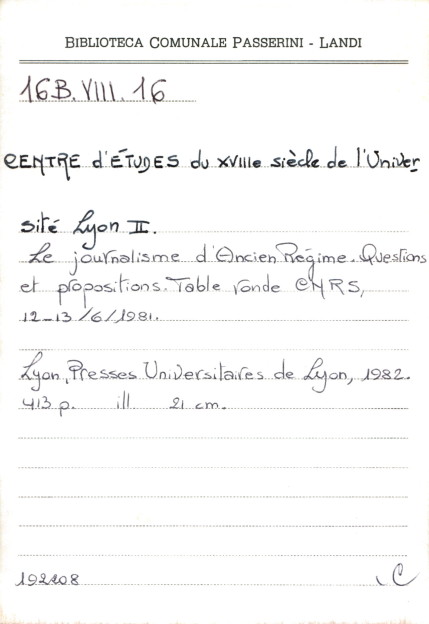 BIBLIOTECA COMUNALE PASSERINI - LANDI
16B.VIII.16
CENTRE d'ÉTUDES du XVIIIe siècle de l'Univer
sité Lyon II.
Le journalisme d'Ancien Régime. Questions
et propositions. Table ronde CNRS,
12-13/6/1981.
Lyon, Presses Universitaires de Lyon, 1982.
413 p. ill 21 cm.
192208
C